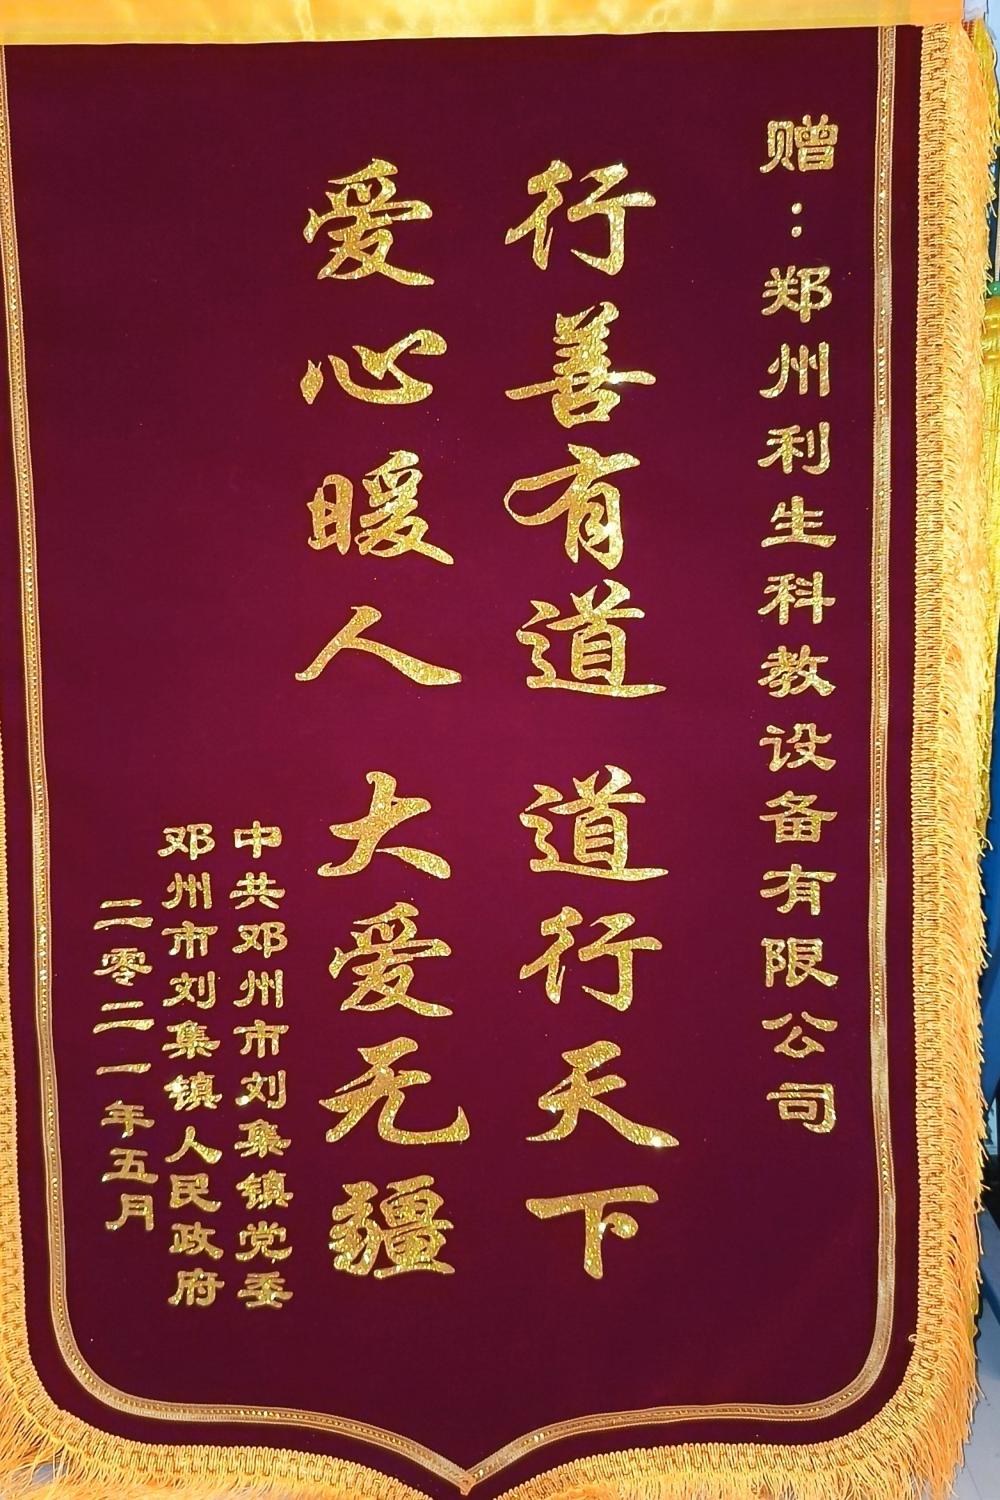 赠：郑州利生科教设备有限公司
行善有道 道行天下
爱心暖人 大爱无疆
中共邓州市刘集镇党委
邓州市刘集镇人民政府
二零二一年五月